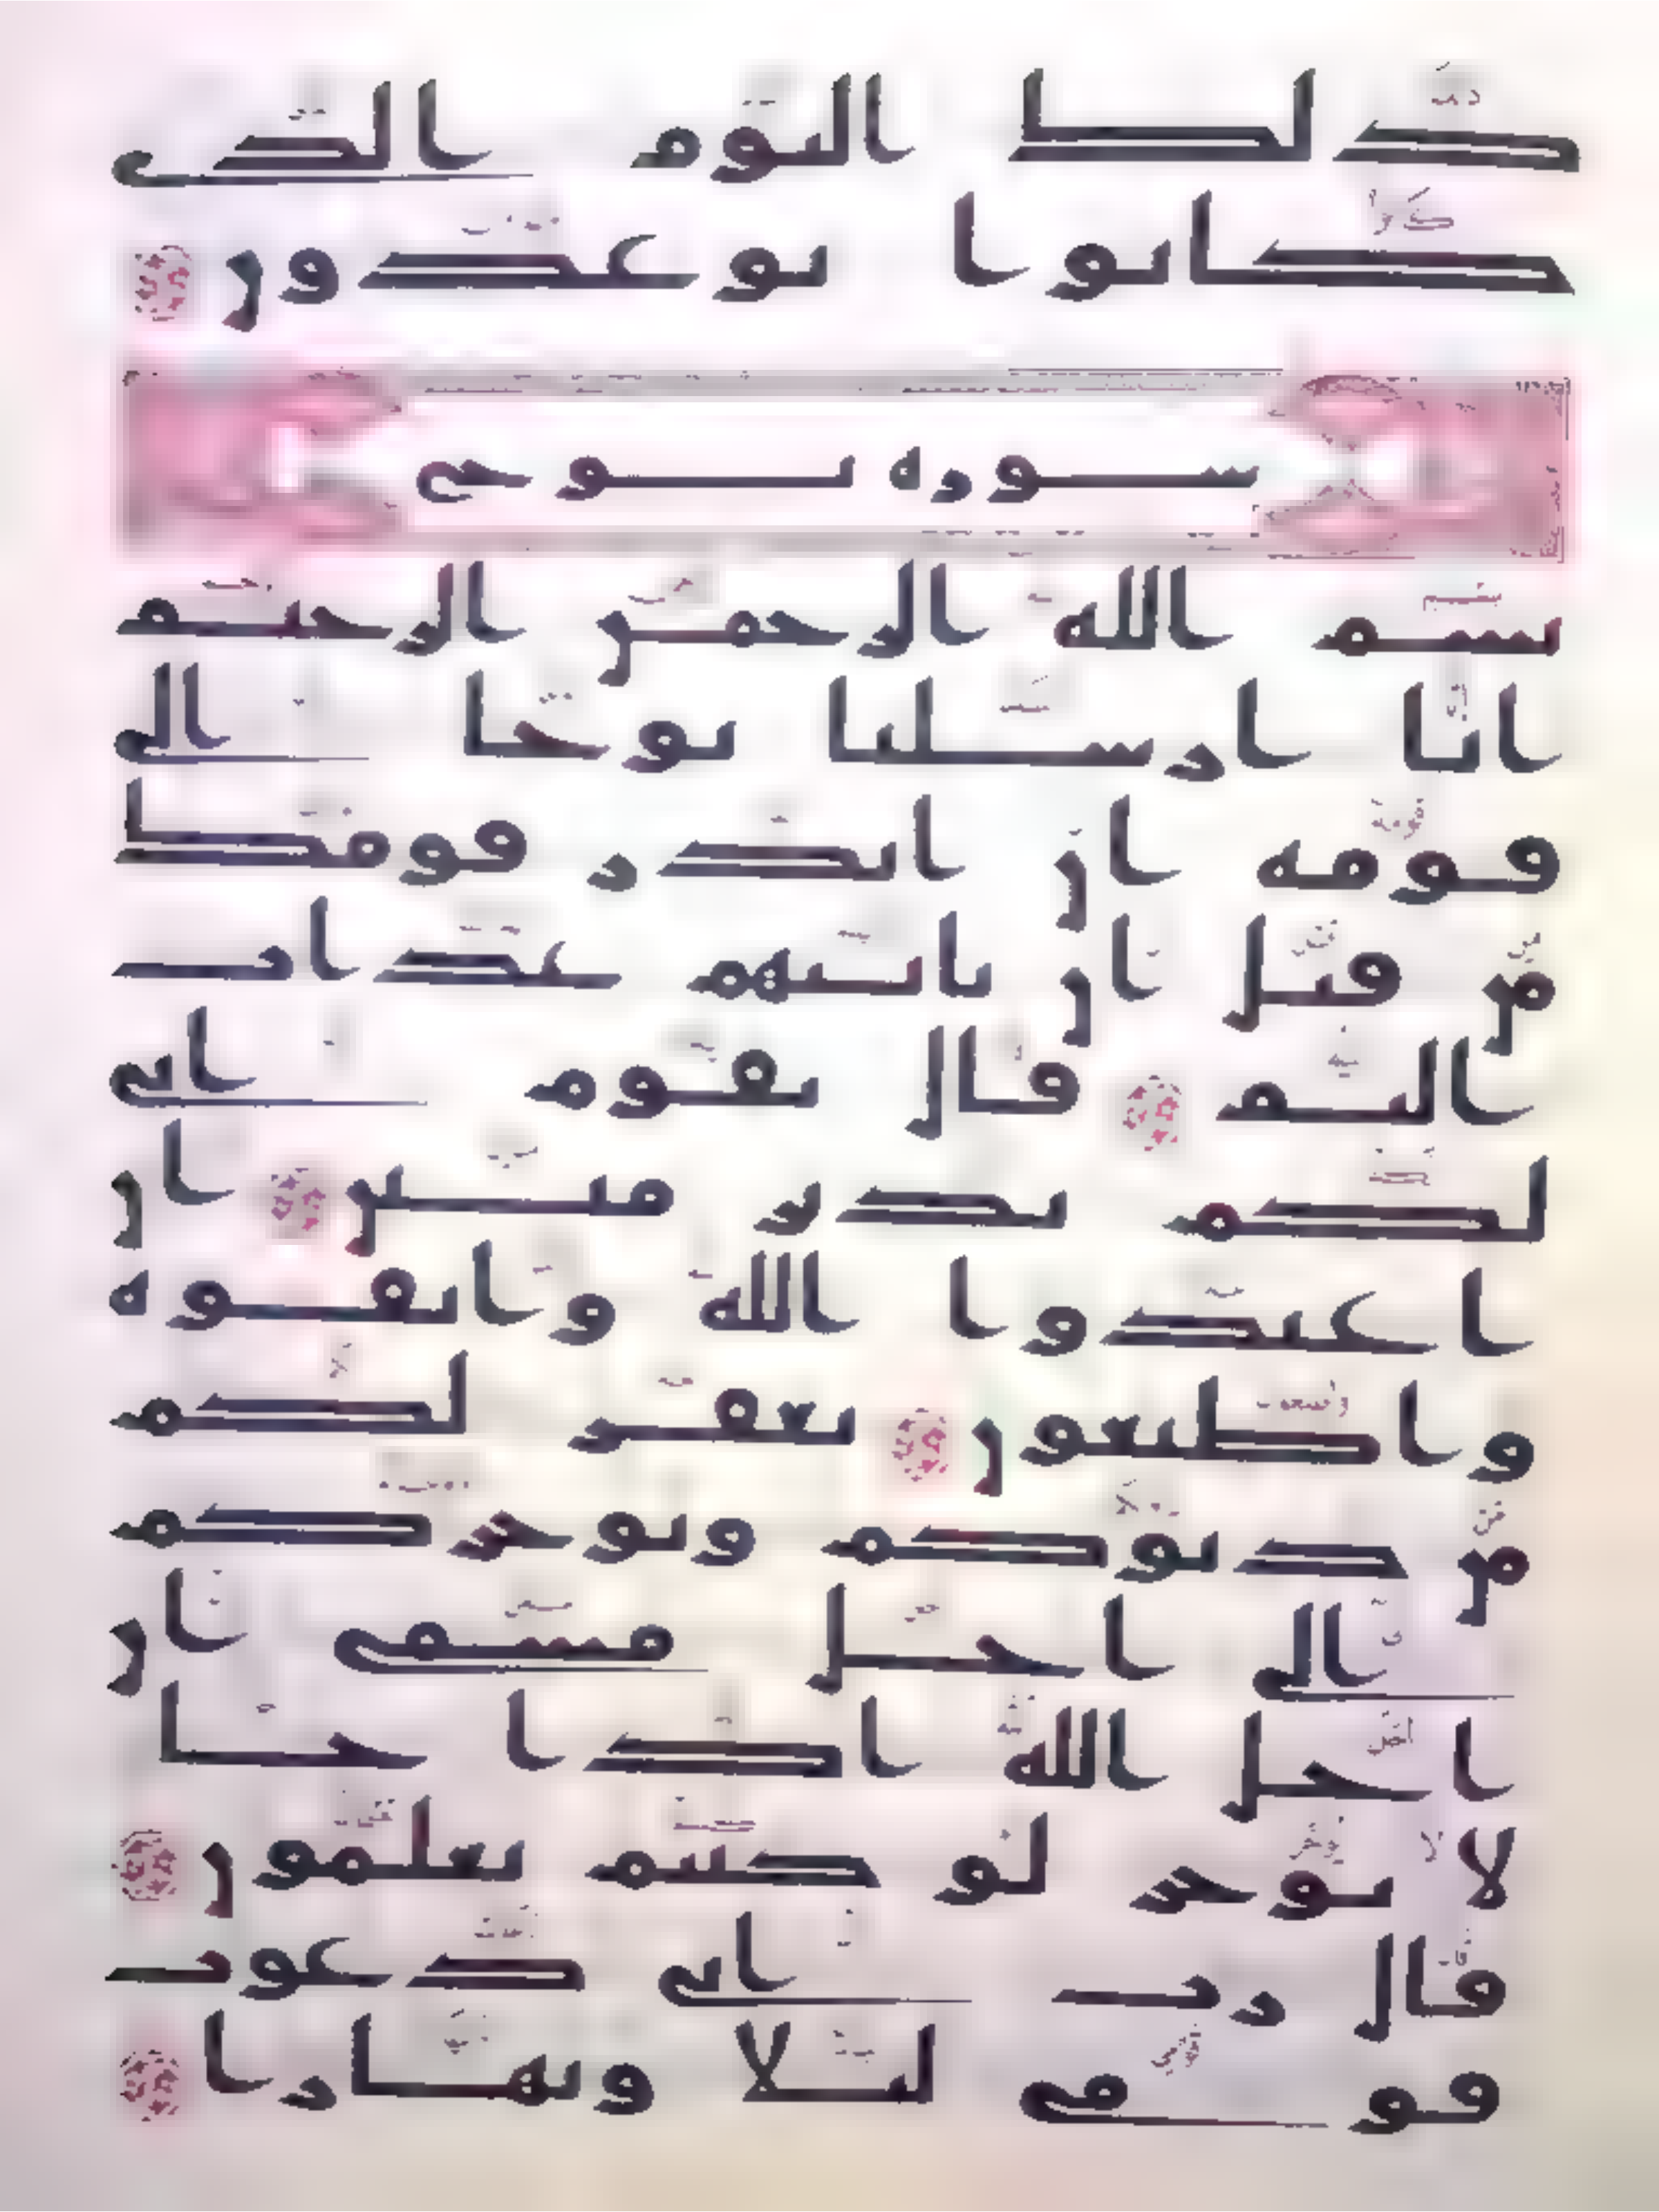 ذلك اليوم الذي
كانوا يوعدون
سورة نوح
بسم الله الرحمن الرحيم
انا ارسلنا نوحا الى
قومه ان انذر قومك
من قبل ان ياتيهم عذاب
اليم قال يقوم اني
لكم نذير مبين ان
اعبدوا الله واتقوه
واطيعون يغفر لكم
من ذنوبكم ويوخركم
الى اجل مسمى ان
اجل الله اذا جا
لا يوخر لو كنتم تعلمون
قال رب اني دعوت
قومي ليلا ونهارا